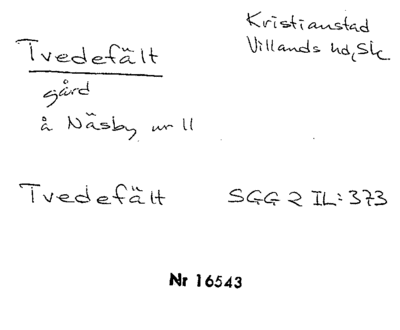 Kristianstad
Villands hd, Sk.
Tvedefält
gård
å Näsby nr 11
Tvedefält SGG 2 IL: 373
Nr 16543